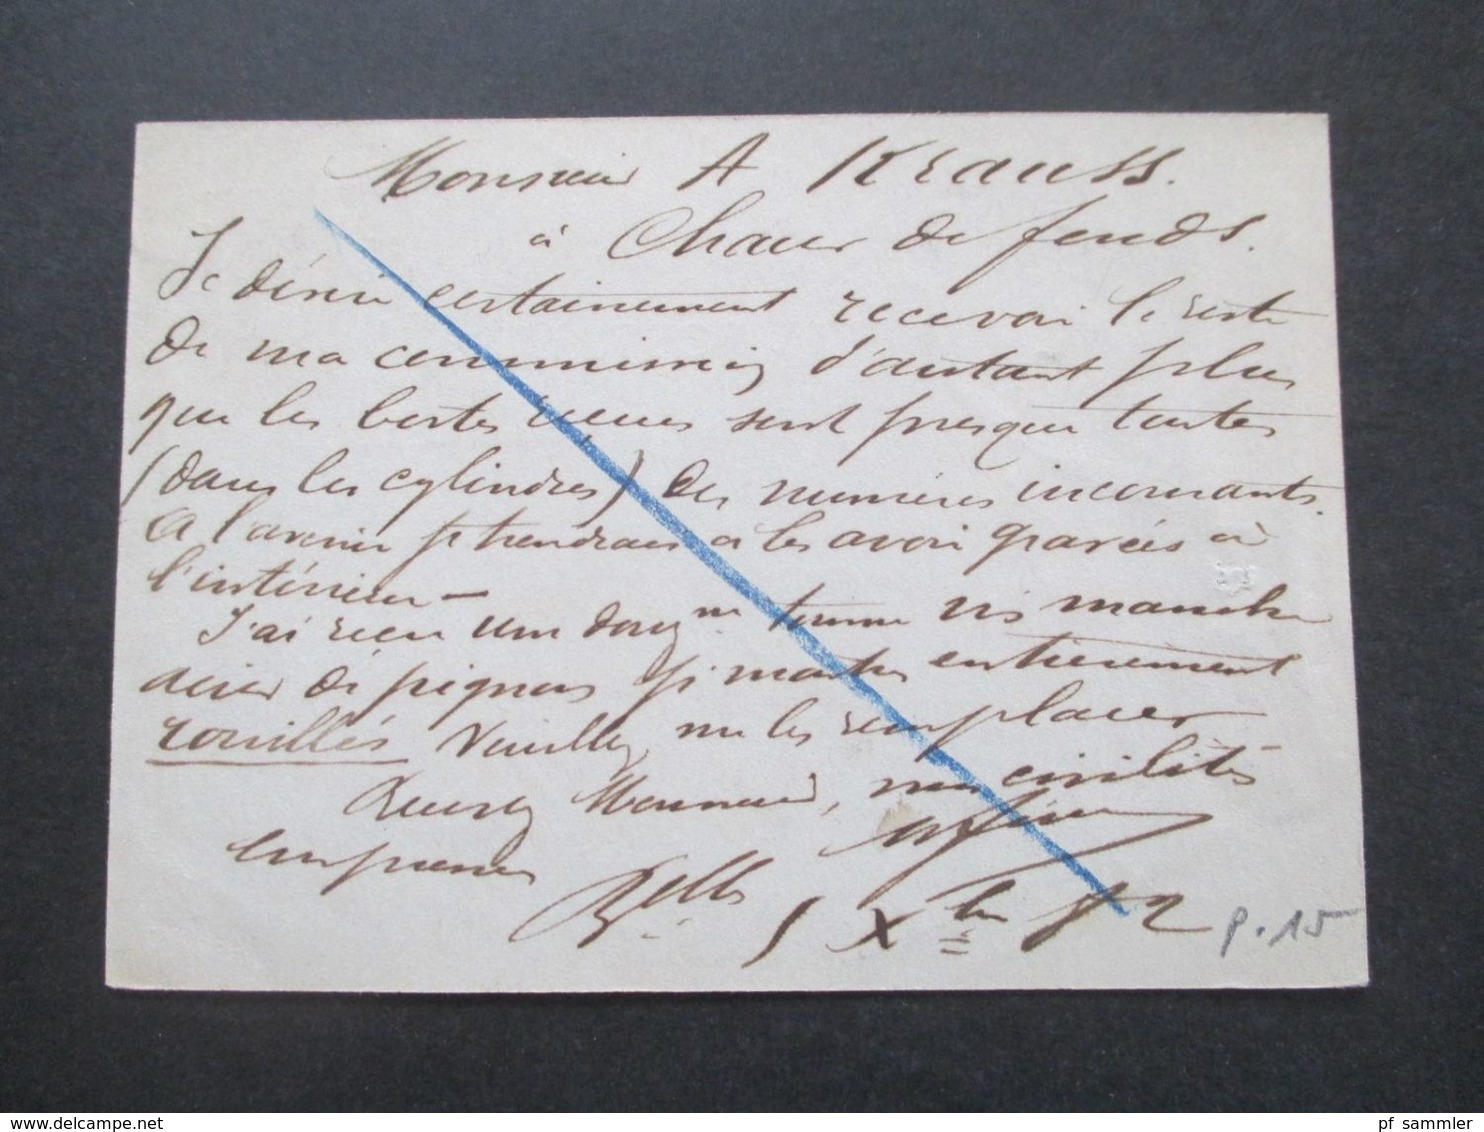 Monsieur A Krauss.
à Chaux de fonds.
Je désire certainement recevoir le reste
de ma commission d'autant plus
que les boites reçues sont presque toutes
(dans les cylindres) des numéros incourants.
A l'avenir je tiendrais a les avoir gravées à
l'intérieur –
J'ai reçu une douz ne tourne vis manche
acier de pignons pr montres entièrement
rouillés Veuillez me les remplacer
Recevez Monsieur, mes civilités
empressées
1 Xbre 82
P. 15
pf_sammler